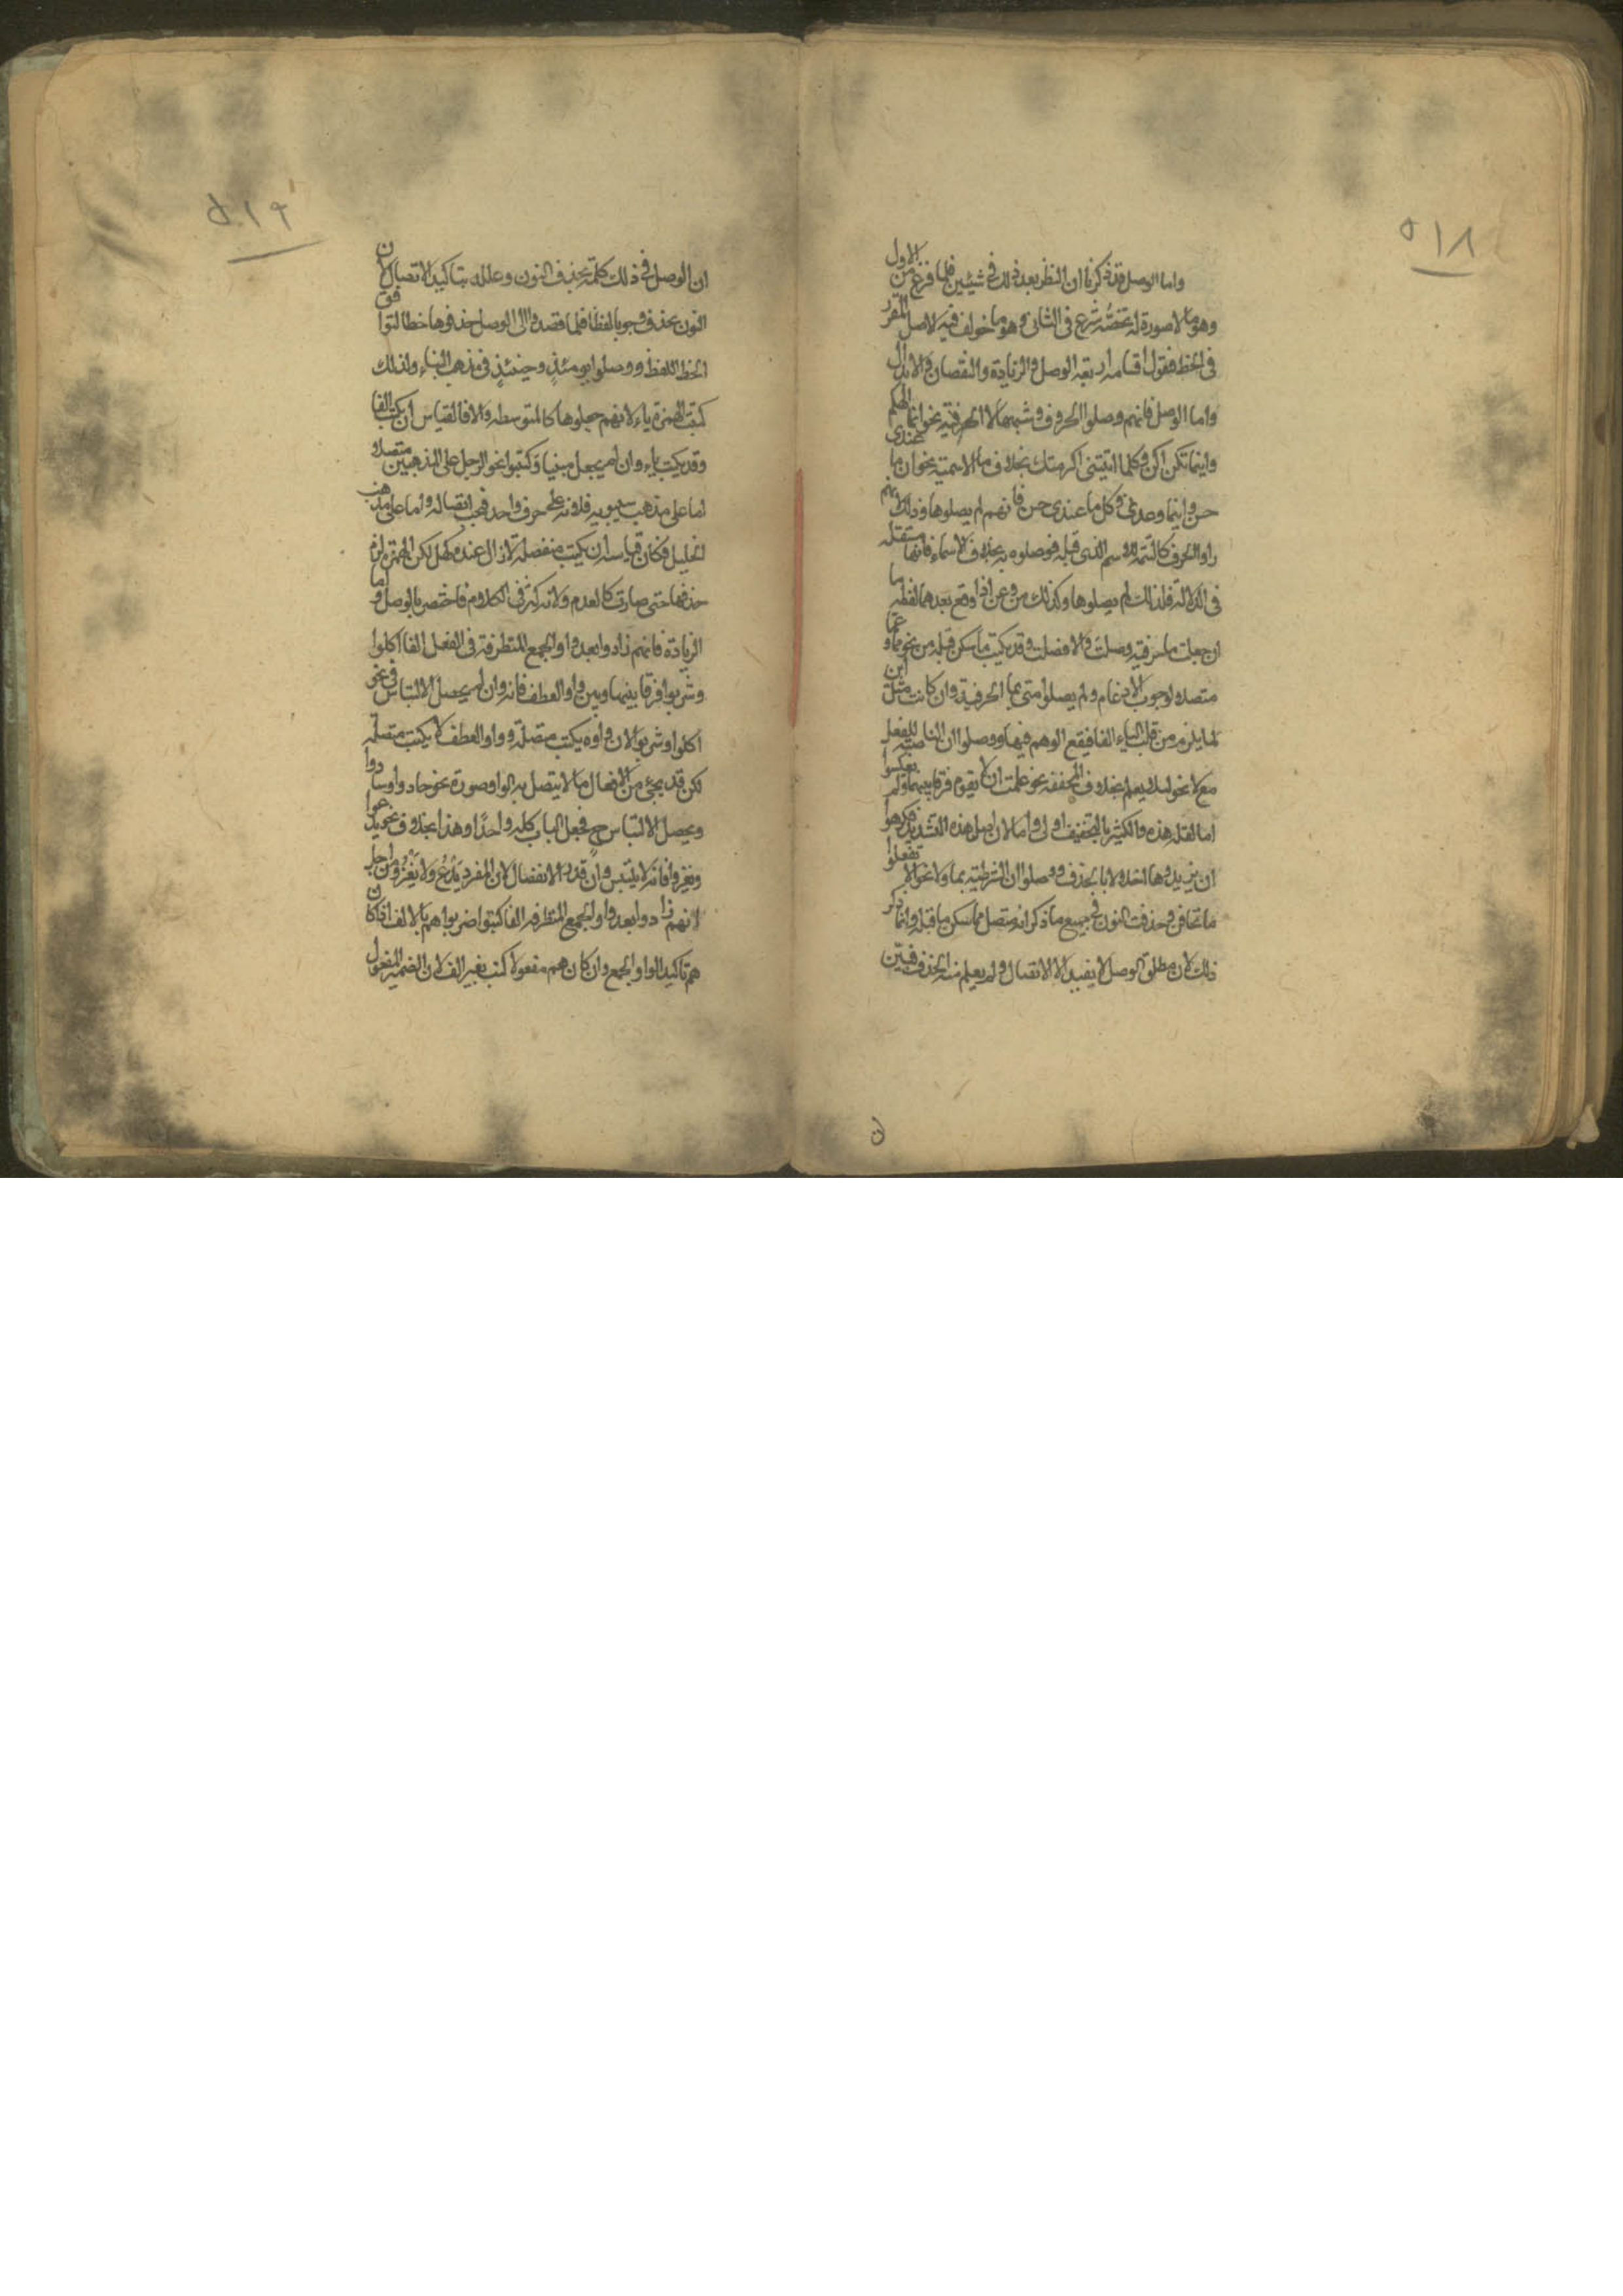 ٥١٨
واما الوصل قد ذكرنا ان النظر بعد ذلك فى شيئين فلما فرغ من الاول
وهو ما لا صورة له تخصّه شرع فى الثانى وهو ما خولف فيه الاصل المقرر
فى الخط فنقول اقسامه اربعة الوصل والزيادة والنقصان والابدال
واما الوصل فانهم وصلوا الحروف وشبهها بما الحرفية نحو انما الهكم
واينما تكن اكن وكلما اتيتنى اكرمتك بخلاف ما الاسمية نحو ان ما عندى
حسن واينما وعدتنى وكل ما عندى حسن فانهم لم يصلوها وذلك انهم
راوا الحرف كالتتمة للاسم الذى قبله فوصلوه به بخلاف الاسماء فانها مستقلة
فى الدلالة فلذلك لم يصلوها وكذلك من وعن اذا وقع بعدهما لفظة ما
ان جعلت ما حرفية وصلت والا فصلت وقد يكتب ما سكن قبله من نحو مما وعما
متصلا لوجوب الادغام ولم يصلوا متى بما الحرفية وان كانت مثل اين
لما يلزم من قلب الياء الفا فيقع الوهم فيها ووصلوا ان الناصبة للفعل
مع لا نحو لئلا يعلم بخلاف المخففة نحو علمت ان لا يقوم فرقا بينهما ولم يعكسوا
اما لقلة هذه والكثير بالتخفيف اولى واما لان اصل هذه التشديد فكرهوا
ان يزيدوها اخلالا بالحذف ووصلوا ان الشرطية بما ولا نحو الا تفعلوا
ما تخافن وحذفت النون فى جميع ما ذكر انه متصل مما سكن ما قبله وانما ذكر
ذلك لان مطلق الوصل لا يفيد الا الاتصال ولم يعلم منه الحذف فبيّن
٥١٩
ان الوصل فى ذلك كلمة بحذف النون وعلله بتاكيد الاتصال لان
النون يحذف وجوبا لفظا فلما قصدوا الى الوصل حذفوها خطا لتوافق
الخط اللفظ ووصلوا يومئذٍ وحينئذٍ فى مذهب البناء ولذلك
كتبت الهمزة ياء لانهم جعلوها كالمتوسطة والا فالقياس ان يكتب الفا
وقد يكتب ياء وان لم يجعل مبنيا وكتبوا نحو الرجل على المذهبين متصلا
اما على مذهب سيبويه فلانه على حرف واحد فيجب اتصاله واما على مذهب
الخليل فكان قياسه ان يكتب منفصلة لان ال عنده كهل لكن الهمزة لزم
حذفها حتى صارت كالعدم ولانه كثر فى الكلام فاختصر بالوصل واما
الزيادة فانهم زادوا بعد واو الجمع المتطرفة فى الفعل الفا اكلوا
وشربوا فرقا بينها وبين واو العطف فانه وان لم يحصل الالتباس فى نحو
اكلوا وشربوا لان واوه يكتب متصلة وواو العطف لا يكتب متصلة
لكن قد يجئ من الافعال ما لا يتصل به الواو صورة نحو جادوا وسادوا
ويحصل الالتباس ح فجعل الباب كله واحدًا وهذا بخلاف نحو يدعوا
ويغزوا فانه لا يلتبس وان قدر الانفصال لان المفرد يَدْعُ ولا يَغْزُ ومن اجل
انهم زادوا بعد واو الجمع المتطرفة الفا كتبوا ضربوا هم بالالف اذا كان
هم تاكيد الواو الجمع وان كان هم مفعولا كتب بغير الف لان الضمير المفعول